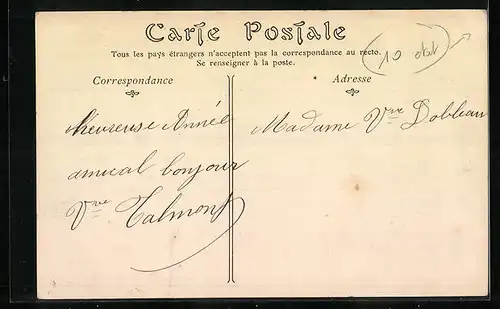 Carte Postale
Tous les pays étrangers n'acceptent pas la correspondance au recto.
Se renseigner à la poste.
10
Correspondance
Adresse
heureuse Année
amical bonjour
Vve Talmont
Madame Vve Dobleau